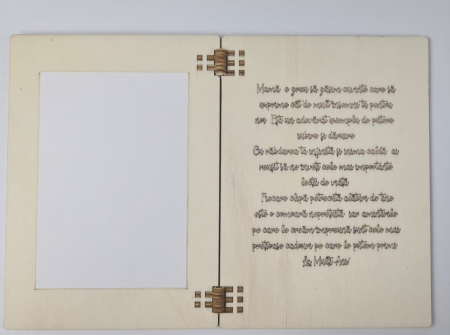 Mamă e greu să găsim cuvinte care să
exprime cât de mult însemni tu pentru
noi. Ești un adevărat exemplu de putere
iubire și dăruire
Cu răbdarea ta infinită și inima caldă ai
reușit să ne înveți cele mai importante
lecții de viață
Fiecare clipă petrecută alături de tine
este o comoară neprețuită iar amintirile
pe care le creăm împreună sunt cele mai
prețioase cadouri pe care le putem primi
La Mulți Ani!